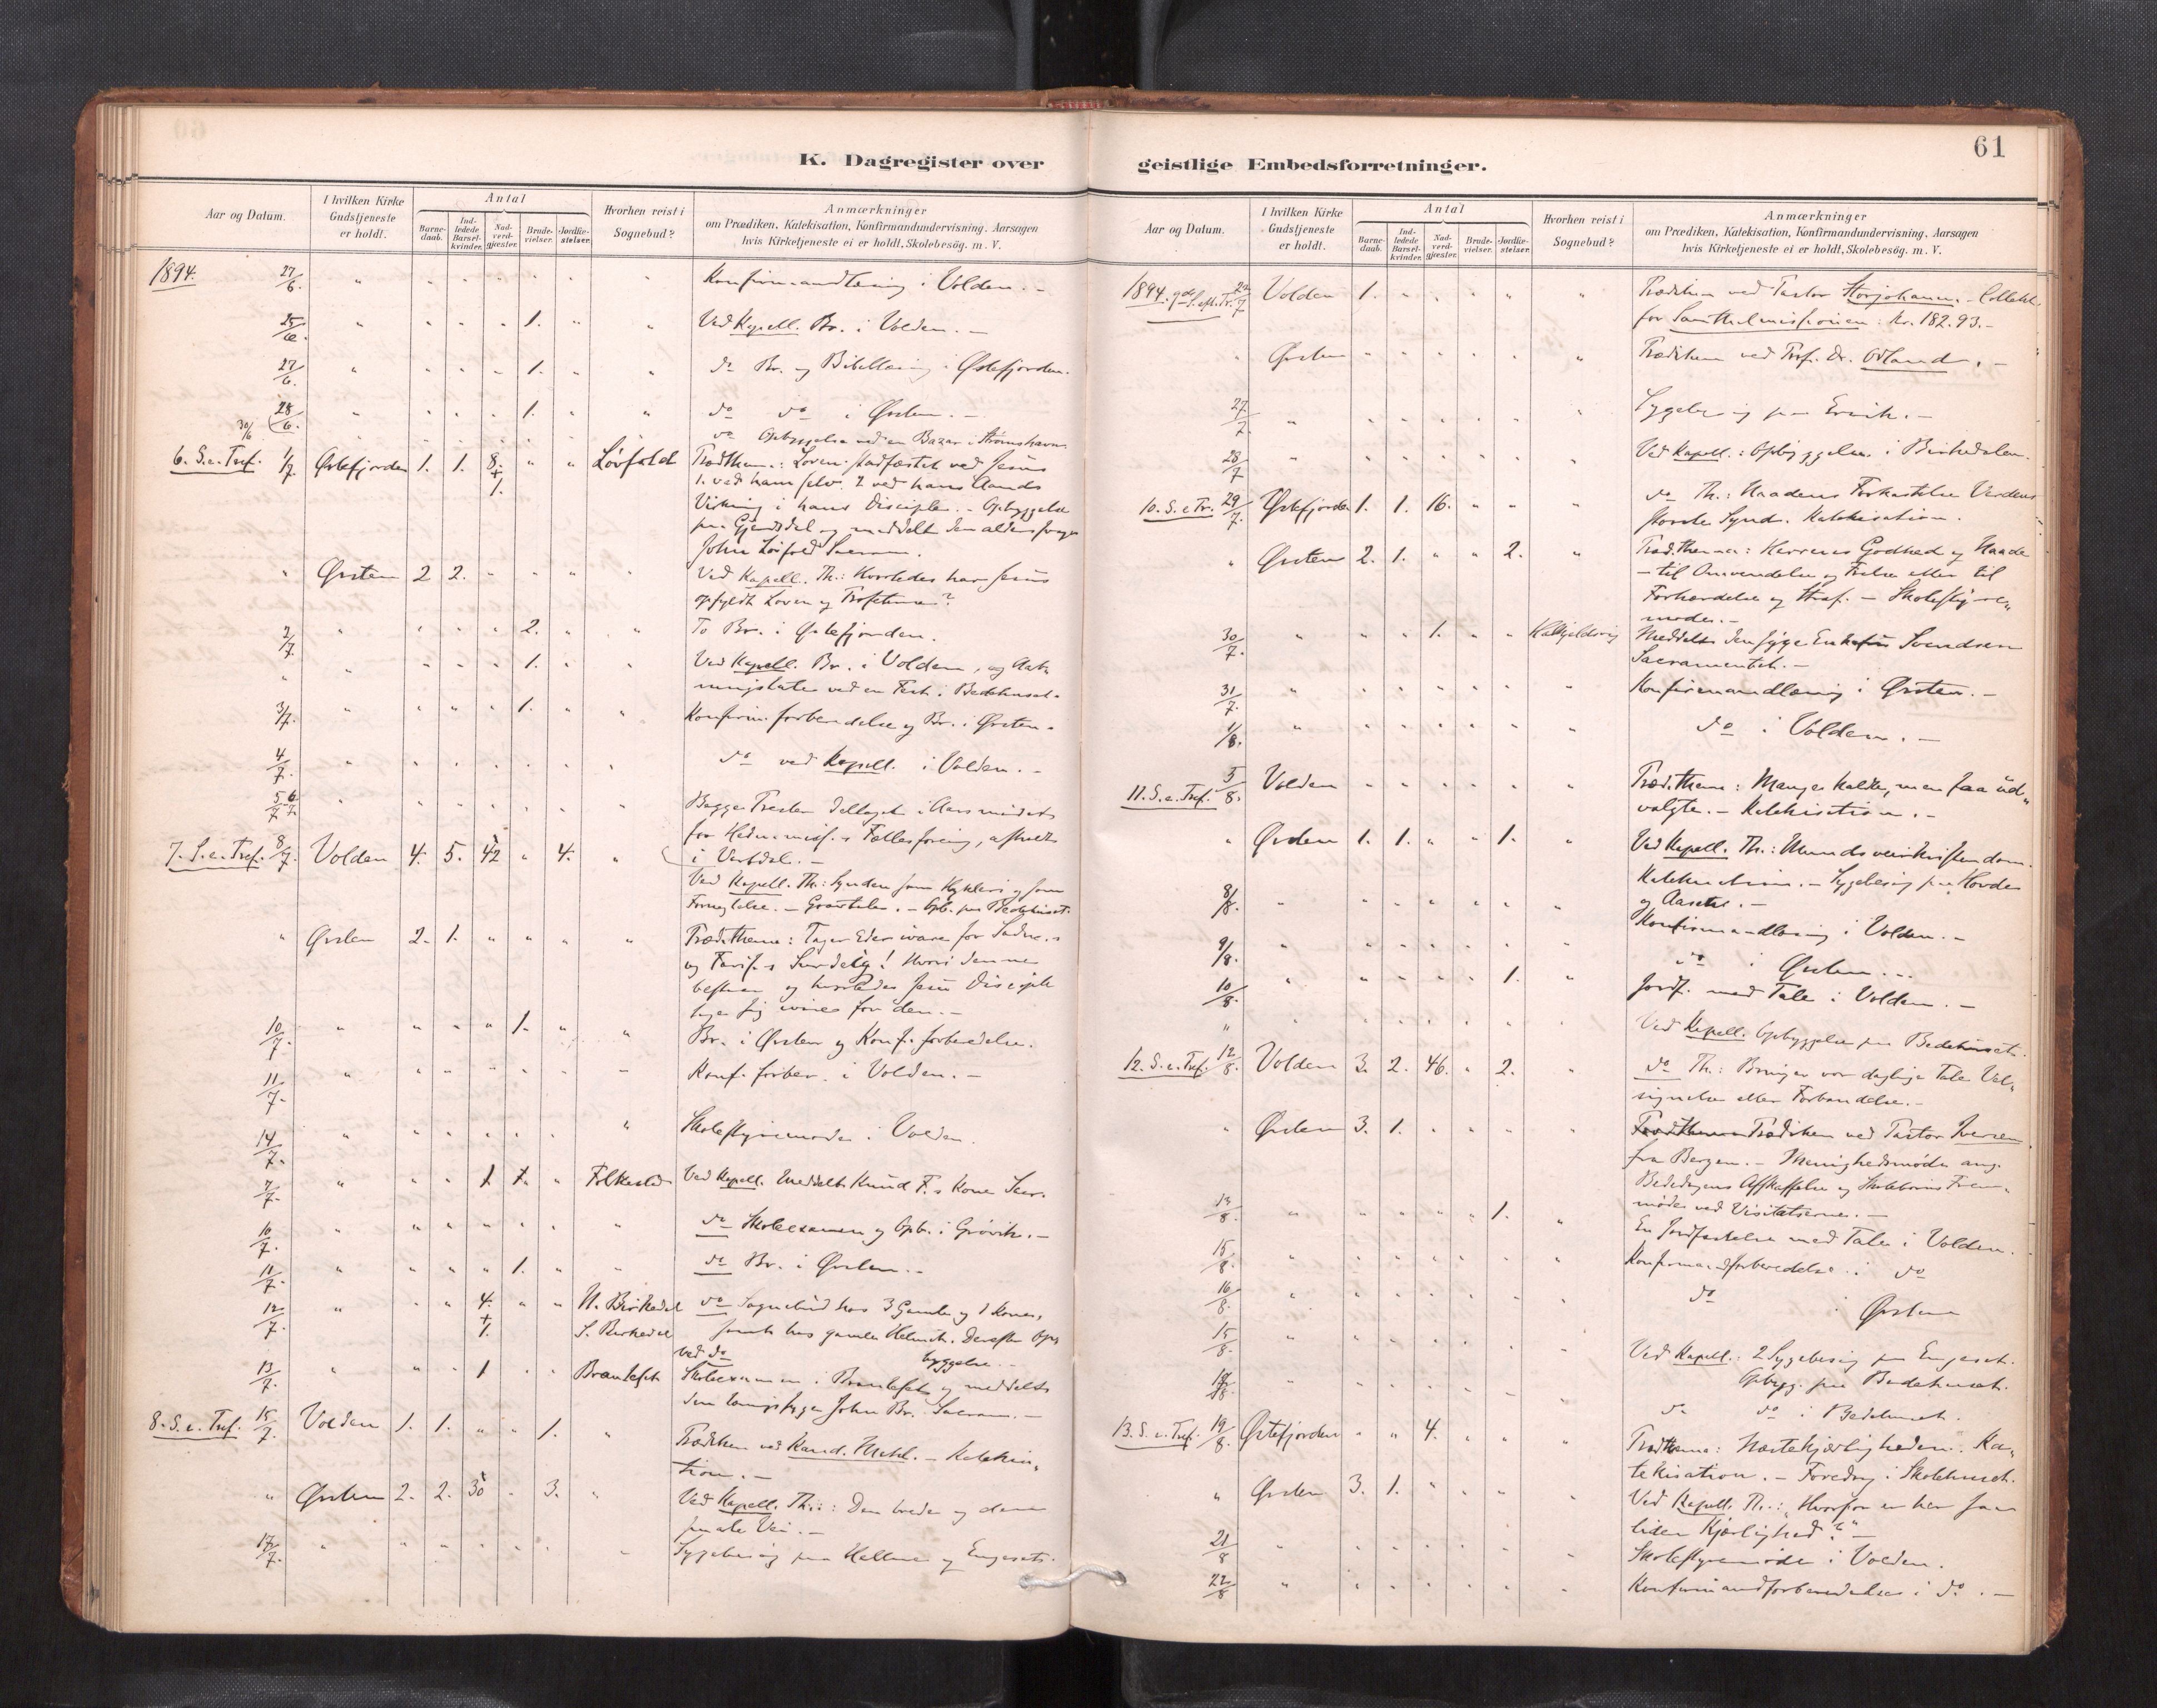 K. Dagregister over
Aar og Datum.
I hvilken Kirke Gudstjeneste er holdt.
Antal
Barne-daab.
Ind-ledede Barsel-kvinder.
Nad-verd-gjæster.
Brude-vielser.
Jordfæ-stelser.
Hvorhen reist i Sognebud?
Anmærkninger
om Prædiken, Katekisation, Konfirmandundervisning, Aarsagen
hvis Kirketjeneste ei er holdt, Skolebesög. m. V.
1894. 27/6 " Konfirmandlæsning i Volden. –
25/6. " 1. " Ved Kapell. Br. i Volden. –
27/6. " 1. " do Br. og Bibellæsning i Østefjorden.
28/6. " 1. " do do i Ørsten. –
30/6 do Opbyggelse ved en Bazar i Strømshavn
6. S. e. Tref. 1/7. Østefjorden 1. 1. 8. + 1. " " Løvfald Prædthema: Loven stadfæstet ved Jesus
1. ved ham selv. 2 ved hans Aands
Virkning i hans Disciple. – Opbyggelse
paa Gjerdsdal og meddelt den
John Løvfald Sacram.
" Ørsten 2 2. " Ved Kapell. Th.: Hvorledes har Jesus
opfyldt Loven og Profeterne?
2/7. " 2. " To Br. i Østefjorden.
" 1. " Ved Kapell. Br. i Volden, og
ved en Fest i Bedehuset.
3/7. " 1. " Konfirm. forberedelse og Br. i Ørsten.
4/7. " do ved Kapell. i Volden. –
5/7 6/7. " Begge Prester deltaget i Aarsmødet
for Hedn. miss.s Fællesforening, afholdt
i Vartdal. –
7. S. e. Tref. 8/7. Volden 4. 5. 42 " 4. "
Ved Kapell. Th: Synden som Hykleri og som
Fornegtelse. – Gravtaler. – Opb. paa Bedehuset.
" Ørsten 2. 1. " Præd.thema: Tager Eder ivare for Sadduc.s
og Faris.s Surdeig! Hvori denne
bestaar og hvorledes Jesu Disciple
tage sig ivare for den. –
10/7. " 1. " Br. i Ørsten og Konf. forberedelse.
11/7. " Konf. forber. i Volden. –
14/7. " Skolestyremøde i Volden.
7/7. " 1. 1. " Folkestad Ved Kapell. Meddelt Knud F.s Kone Sacr.
10/7. " do Skoleexamen og Opb. i Grøvik. –
11/7. " 1. " do Br. i Ørsten. –
12/7. " 4. + 1. " N. Birkedal do Sognebud hos 3 Gamle og 1 Kone,
S. Birkedal samt hos gamle Helmich. Derefter Op-
byggelse. –
13/7. " 1 " Brauteset ved do Skoleexamen i Brauteset og meddelt
den langsyge John Br. Sacram. –
8. S. e. Tref. 15/7. Volden 1. 1. " " 1. " Prædiken ved Kand. Mehl. – Katekisa-
tion. –
" Ørsten 2. 2. 30 " 3. " Ved Kapell. Th.: Den brede og den
smale Vei. –
17/7. " Sygebesøg paa Hellene og Engeset.
61
geistlige Embedsforretninger.
Aar og Datum.
I hvilken Kirke Gudstjeneste er holdt.
Antal
Barne-daab.
Ind-ledede Barsel-kvinder.
Nad-verd-gjæster.
Brude-vielser.
Jordfæ-stelser.
Hvorhen reist i Sognebud?
Anmærkninger
om Prædiken, Katekisation, Konfirmandundervisning, Aarsagen
hvis Kirketjeneste ei er holdt, Skolebesög. m. V.
1894. 9de S. eft. Tr. 22/7 Volden 1. " Prædiken ved Pastor Storjohann. – Collekt.
for Santhalmissionen: Kr. 182.93. –
" Ørsten " Prædiken ved Prof. Dr. Odland. –
27/7. " Sygebesøg paa Ervik. –
28/7 " Ved Kapell.: Opbyggelse i Birkedalen.
10. S. e Tr. 29/7. Østefjorden 1. 1. 16. " do Th.: Naadens Forkastelse Verdens
største Synd. Katekisation.
" Ørsten 2. 1. " " 2. " Præd.thema: Herrens Godhed og Naade
– til Omvendelse og Frelse eller til
Forhærdelse og Straf. – Skolestyre-
møde. –
30/7. " 1. " Meddelt den syge Enkefru Svendsen
Sacramentet. –
31/7. " Konfirmandlæsning i Ørsten. –
1/8. " do i Volden. –
11. S. e. Tref. 5/8. Volden " Præd.thema: Mange kaldte, men faa ud-
valgte. – Katekisation. –
" Ørsten 1. 1. " " 1. " Ved Kapell. Th.: Mundsveirkristendom.
Katekisation. – Sygebesøg paa Hovde
og Aasene. –
8/8. " Konfirmandlæsning i Volden. –
9/8. " do i Ørsten. –
10/8. " 1. " Jordf. med Tale i Volden. –
" Ved Kapell. Opbyggelse paa Bedehuset.
12. S. e. Tref. 12/8. Volden 3. 2. 46. " 2. " do Th.: Bringer vor daglige Tale Vel-
signelse eller Forbandelse. –
" Ørsten 3. 1. " Prædiken ved Pastor Iversen
fra Bergen. – Menighedsmøde ang.
Bededagens Afskaffelse og Skolebarns Frem-
møde ved Visitatserne. –
13/8. " 1. " En Jordfæstelse med Tale i Volden.
15/8. " Konfirmandforberedelse i do
16/8. " do i Ørsten
15/8. " Ved Kapell.: 2 Sygebesøg paa Engeset.
Opbygg. paa Bedehuset.
18/8. " do do i Bedehuset.
13. S. e. Tref. 19/8. Østefjorden " " 4. " Prædthema: Næstekjærligheden. Ka-
tekisation. – Foredrag i Skolehuset.
" Ørsten 3. 1. " Ved Kapell. Th.: "Hvorfor er her saa
liden Kjærlighed?" –
21/8 " Skolestyremøde i Volden.
22/8 " Konfirmandforberedelse i do. –